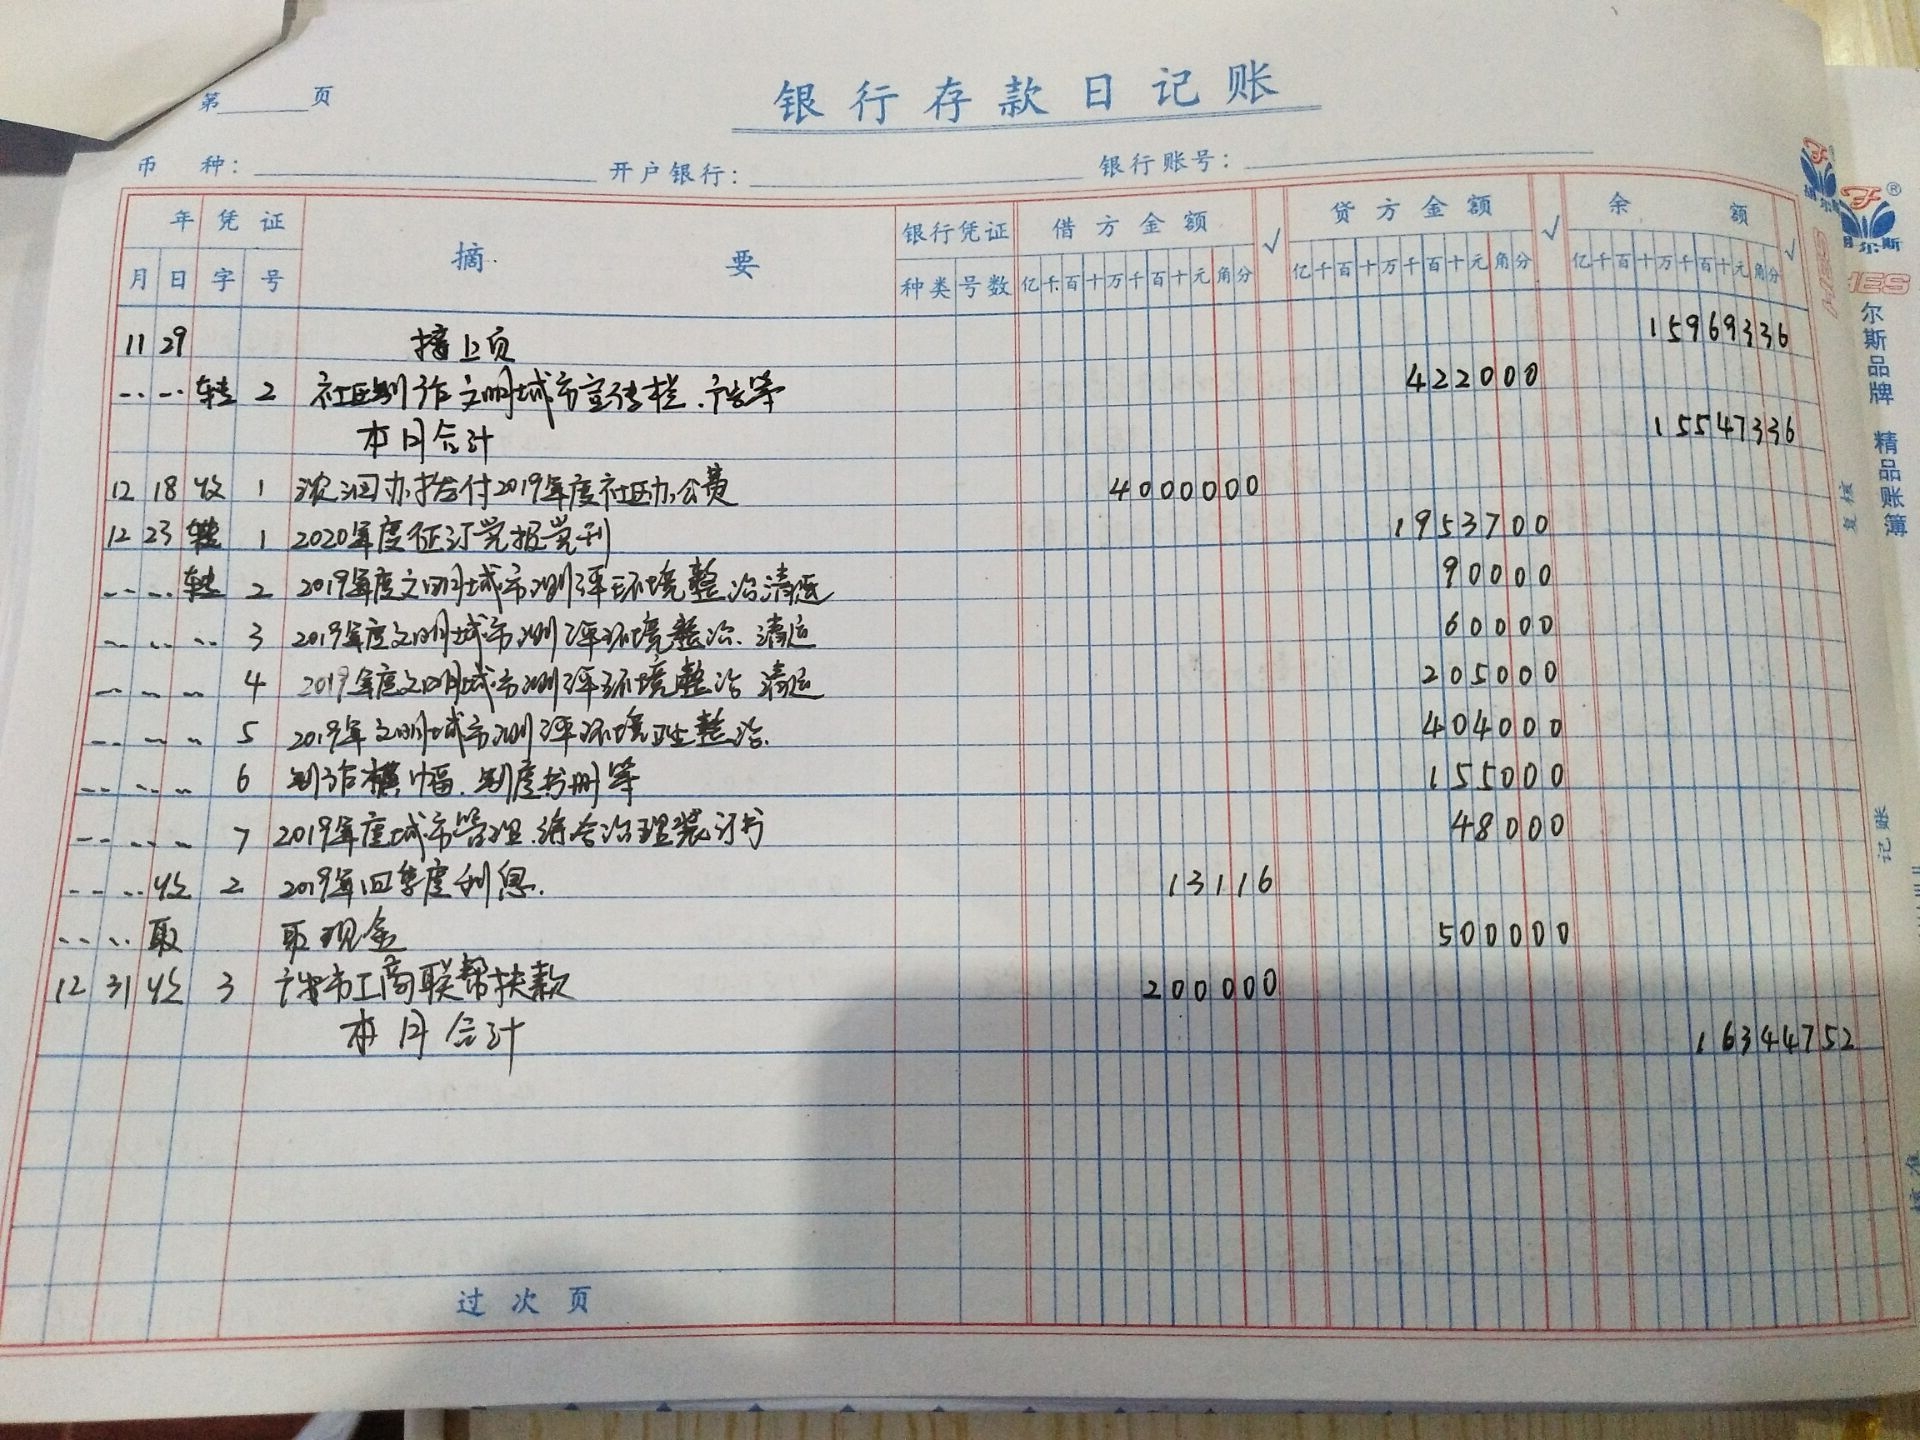 第 页
银行存款日记账
币 种: 开户银行: 银行账号:
年 凭证 摘 要 银行凭证 借方金额 √ 贷方金额 √ 余 额 √
月 日 字 号 种类 号数 亿千百十万千百十元角分 亿千百十万千百十元角分 亿千百十万千百十元角分
11 29 接上页 15969336
转 2 社区制作文明城市宣传栏、广告等 422000
本月合计 15547336
12 18 收 1 办拨付2019年度社区办公费 4000000
12 23 转 1 2020年度征订党报党刊 1953700
转 2 2019年度文明城市测评环境整治清运 90000
3 2019年度文明城市测评环境整治、清运 60000
4 2019年度文明城市测评环境整治 清运 205000
5 2019年文明城市测评环境卫生整治. 404000
6 制作横幅、制度书册等 155000
7 2019年度城市管理、综合治理装订书 48000
收 2 2019年四季度利息. 13116
取 取现金 500000
12 31 收 3 市工商联帮扶款 200000
本月合计 16344752
过次页
尔斯品牌 精品账簿
复核
记账
HES
IES
®
尔斯